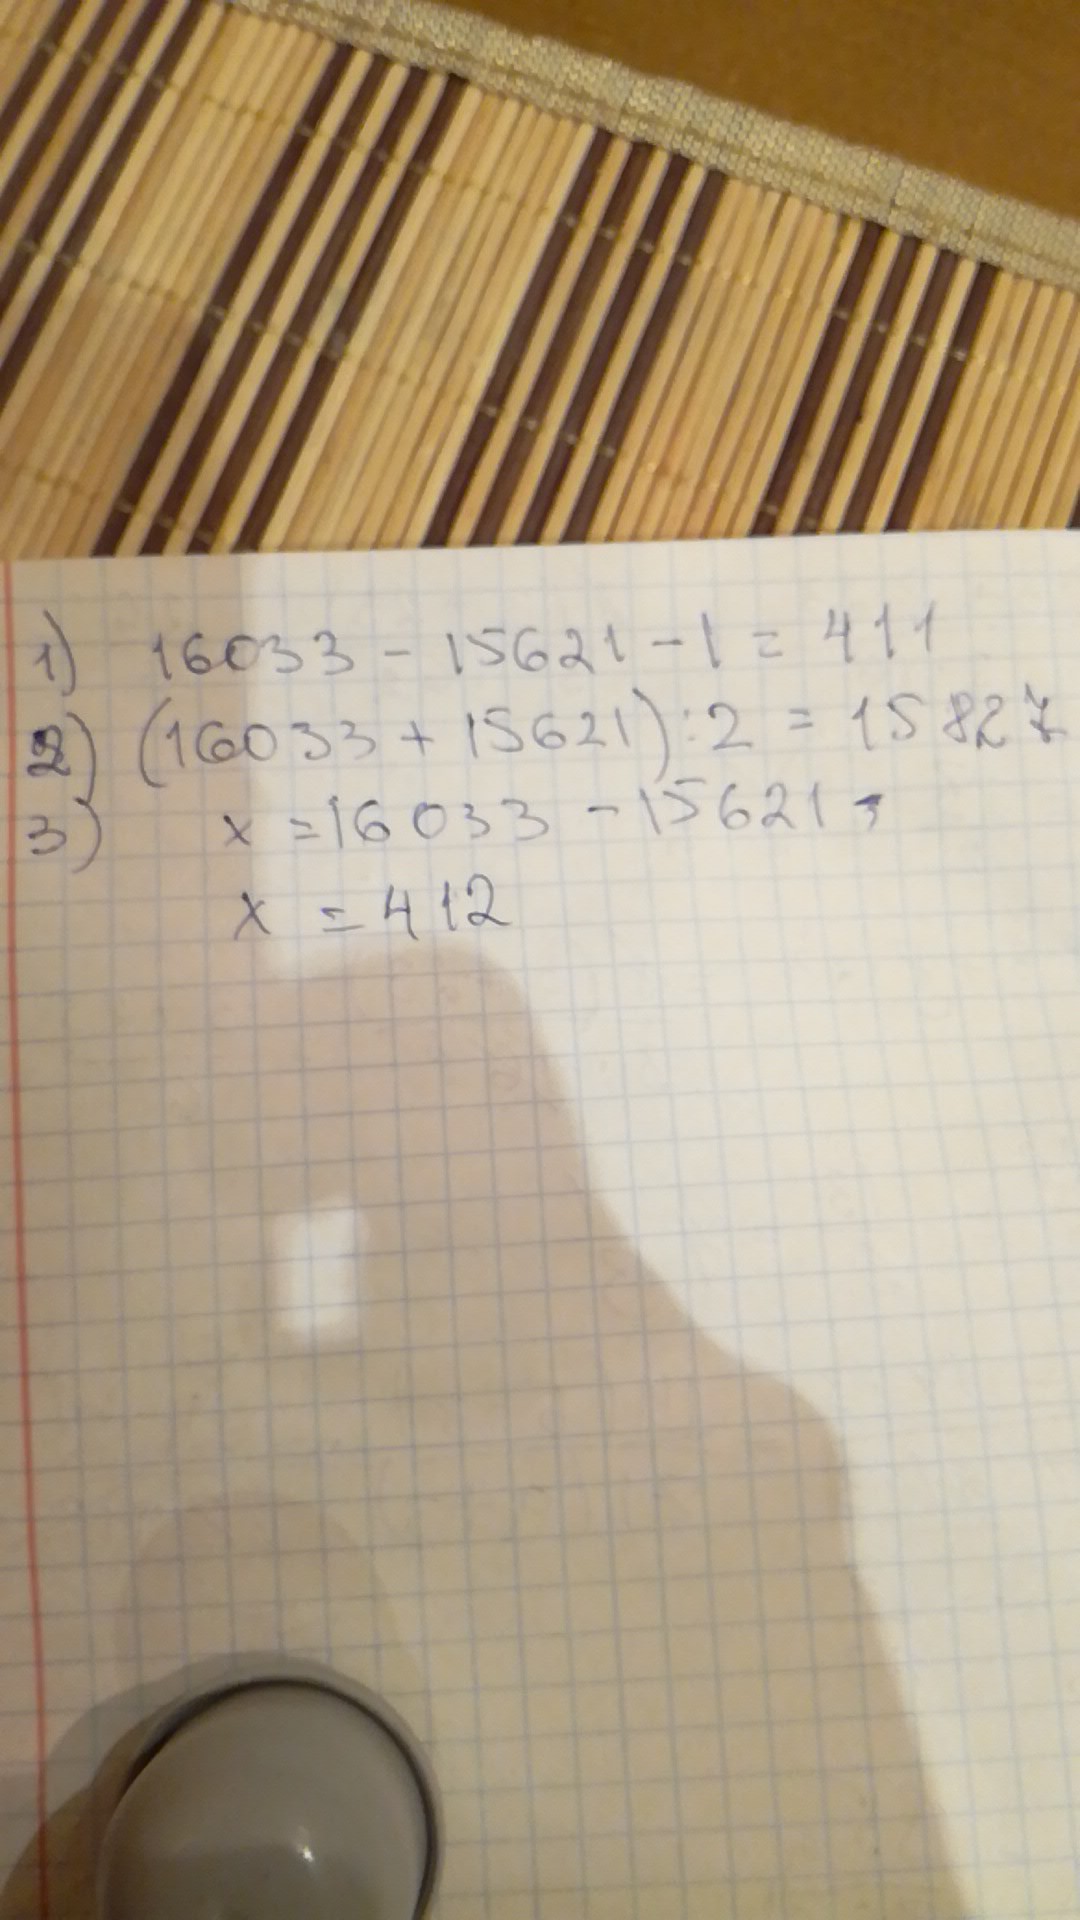 1) 16033 - 15621 - 1 = 411
2) (16033 + 15621) : 2 = 15827
3) x = 16033 - 15621
x = 412